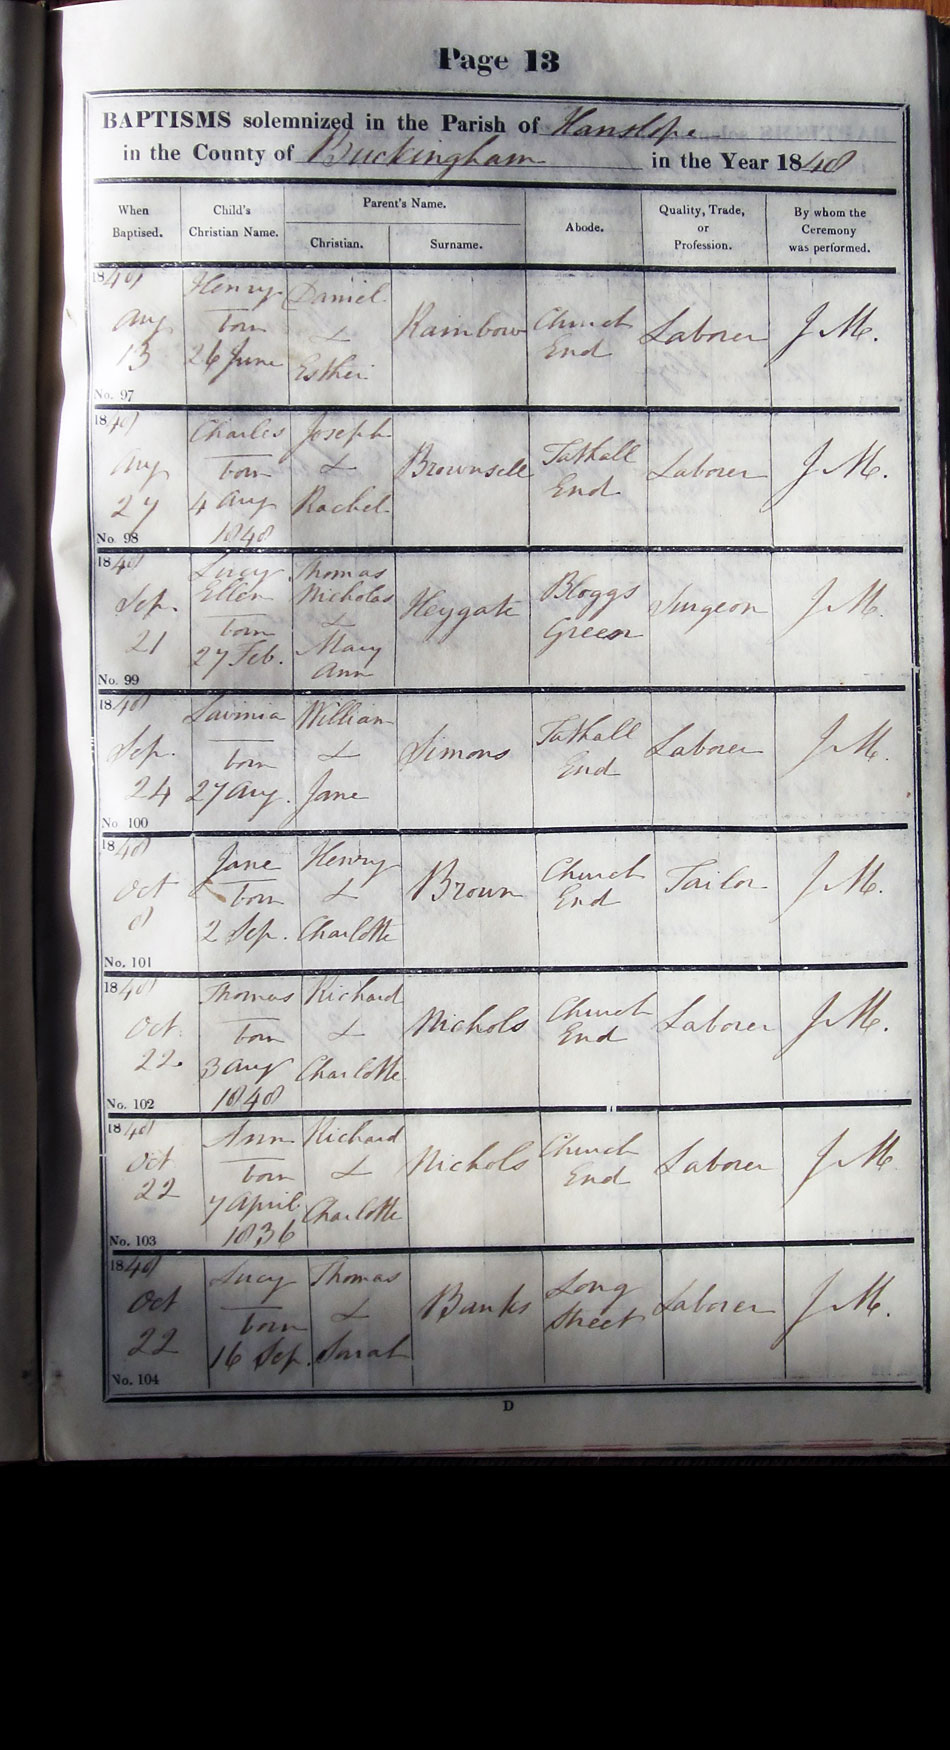 Page 13
BAPTISMS solemnized in the Parish of Hanslope
in the County of Buckingham in the Year 1848
When Baptised.
Child's Christian Name.
Parent's Name.
Christian.
Surname.
Abode.
Quality, Trade, or Profession.
By whom the Ceremony was performed.
1848
Aug
13
No. 97
Henry
born
26 June
Daniel
&
Esther
Rainbow
Church
End
Laborer
J M.
1848
Aug
27
No. 98
Charles
born
4 Aug
1848
Joseph
&
Rachel
Brownsell
Tathall
End
Laborer
J M.
1848
Sep.
21
No. 99
Lucy
Ellen
born
27 Feb.
Thomas
Nicholas
&
Mary
Ann
Heygate
Bloggs
Green
Surgeon
J M.
1848
Sep.
24
No. 100
Lavinia
born
27 Aug.
William
&
Jane
Simons
Tathall
End
Laborer
J M.
1848
Oct
8
No. 101
Jane
born
2 Sep.
Henry
&
Charlotte
Brown
Church
End
Tailor
J M.
1848
Oct.
22.
No. 102
Thomas
born
3 Aug
1848
Richard
&
Charlotte
Nichols
Church
End
Laborer
J M.
1848
Oct
22
No. 103
Ann
born
7 April
1836
Richard
&
Charlotte
Nichols
Church
End
Laborer
J M.
1848
Oct
22
No. 104
Lucy
born
16 Sep.
Thomas
&
Sarah
Banks
Long
Street
Laborer
J M.
D